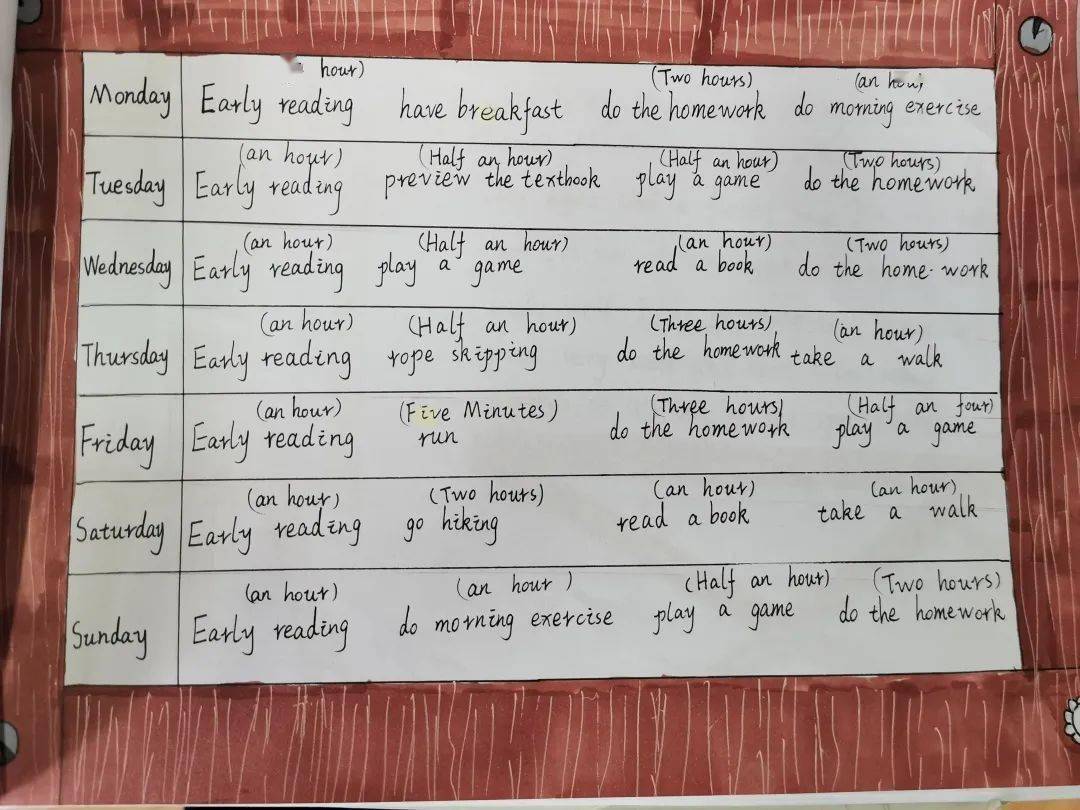 hour) (Two hours) (an hour
Monday Early reading have breakfast do the homework do morning exercise
(an hour) (Half an hour) (Half an hour) (Two hours)
Tuesday Early reading preview the textbook play a game do the homework
(an hour) (Half an hour) (an hour) (Two hours)
Wednesday Early reading play a game read a book do the home-work
(an hour) (Half an hour) (Three hours) (an hour)
Thursday Early reading rope skipping do the homework take a walk
(an hour) (Five Minutes) (Three hours) (Half an four)
Friday Early reading run do the homework play a game
(an hour) (Two hours) (an hour) (an hour)
Saturday Early reading go hiking read a book take a walk
(an hour) (an hour) (Half an hour) (Two hours)
Sunday Early reading do morning exercise play a game do the homework